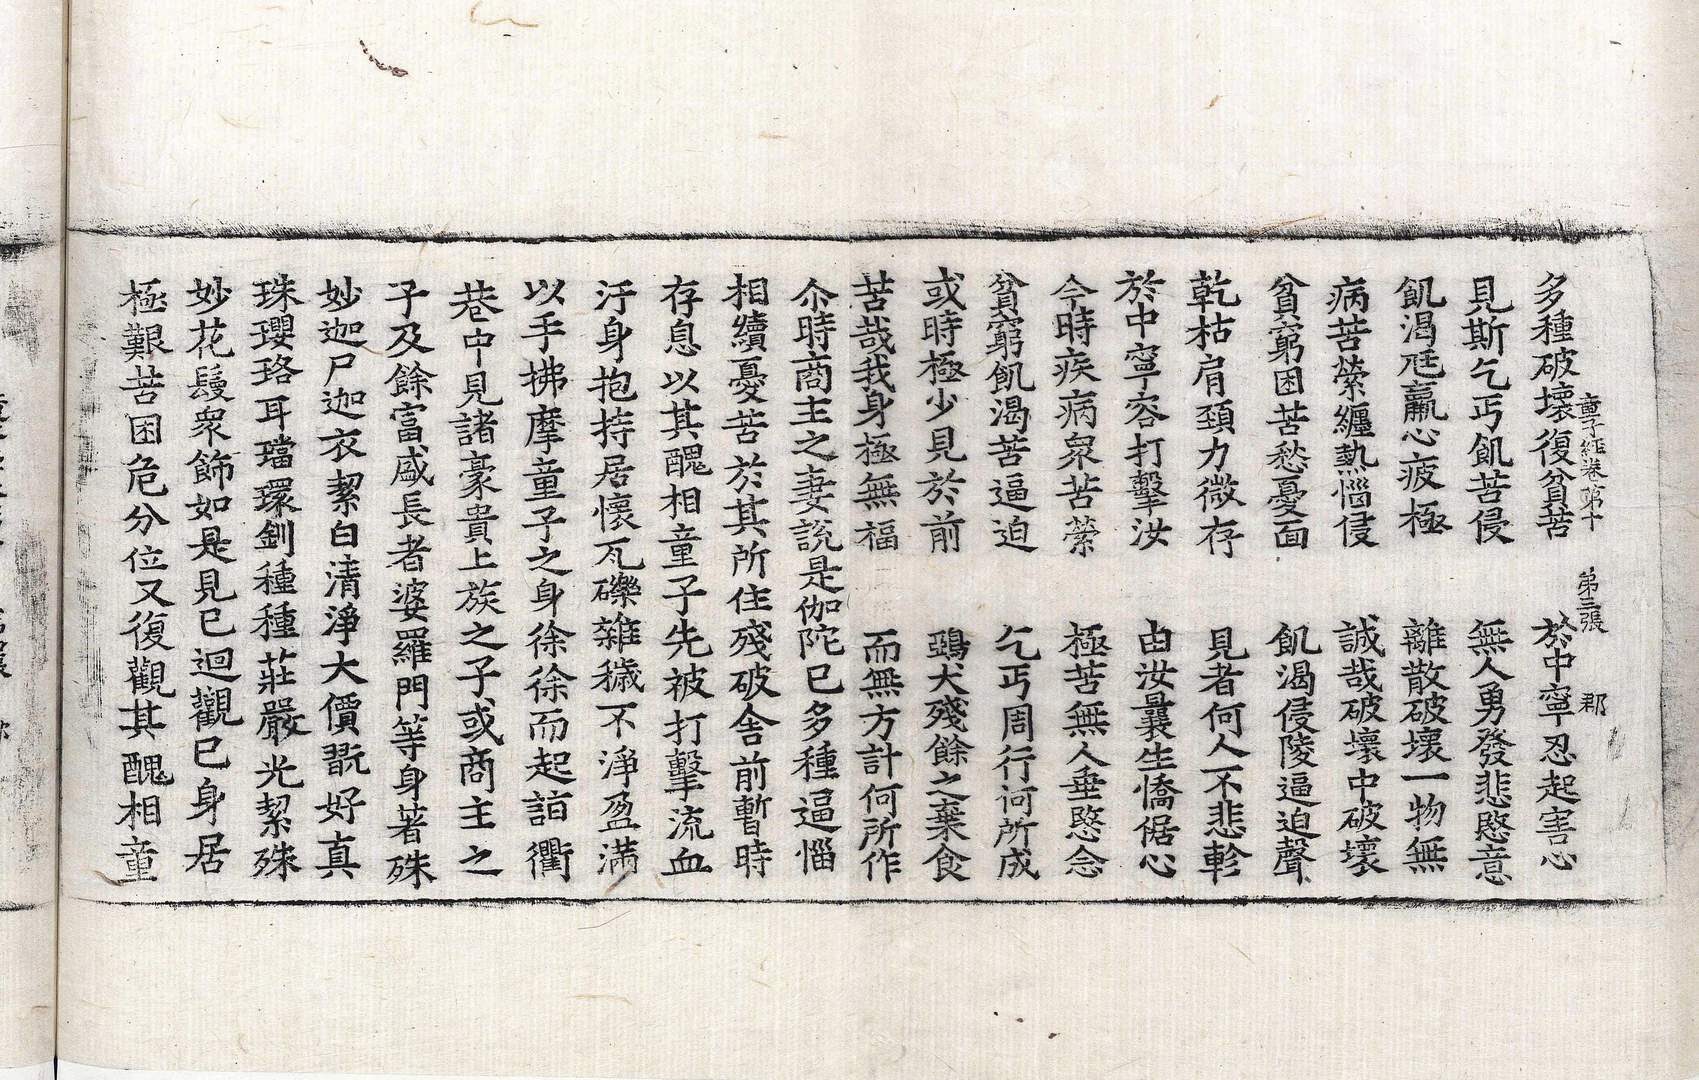 童子經卷第十　第三張　郡
多種破壞復貧苦　於中寧忍起害心
見斯乞丐飢苦侵　無人勇發悲愍意
飢渴尫羸心疲極　離散破壞一物無
病苦縈纏熱惱侵　誠哉破壞中破壞
貧窮困苦愁憂面　飢渴侵陵逼迫聲
乾枯肩頸力微存　見者何人不悲軫
於中寧容打擊汝　由汝曩生憍倨心
今時疾病衆苦縈　極苦無人垂愍念
貧窮飢渴苦逼迫　乞丐周行何所成
或時極少見於前　鵶犬殘餘之棄食
苦哉我身極無福　而無方計何所作
尒時商主之妻說是伽陀已多種逼惱
相續憂苦於其所住殘破舍前暫時
存息以其醜相童子先被打擊流血
汙身抱持居懷瓦礫雜穢不淨盈滿
以手拂摩童子之身徐徐而起詣衢
巷中見諸豪貴上族之子或商主之
子及餘富盛長者婆羅門等身著殊
妙迦尸迦衣絜白清淨大價翫好真
珠瓔珞耳璫環釧種種莊嚴光絜殊
妙花鬘衆飾如是見已迴觀已身居
極艱苦困危分位又復觀其醜相童